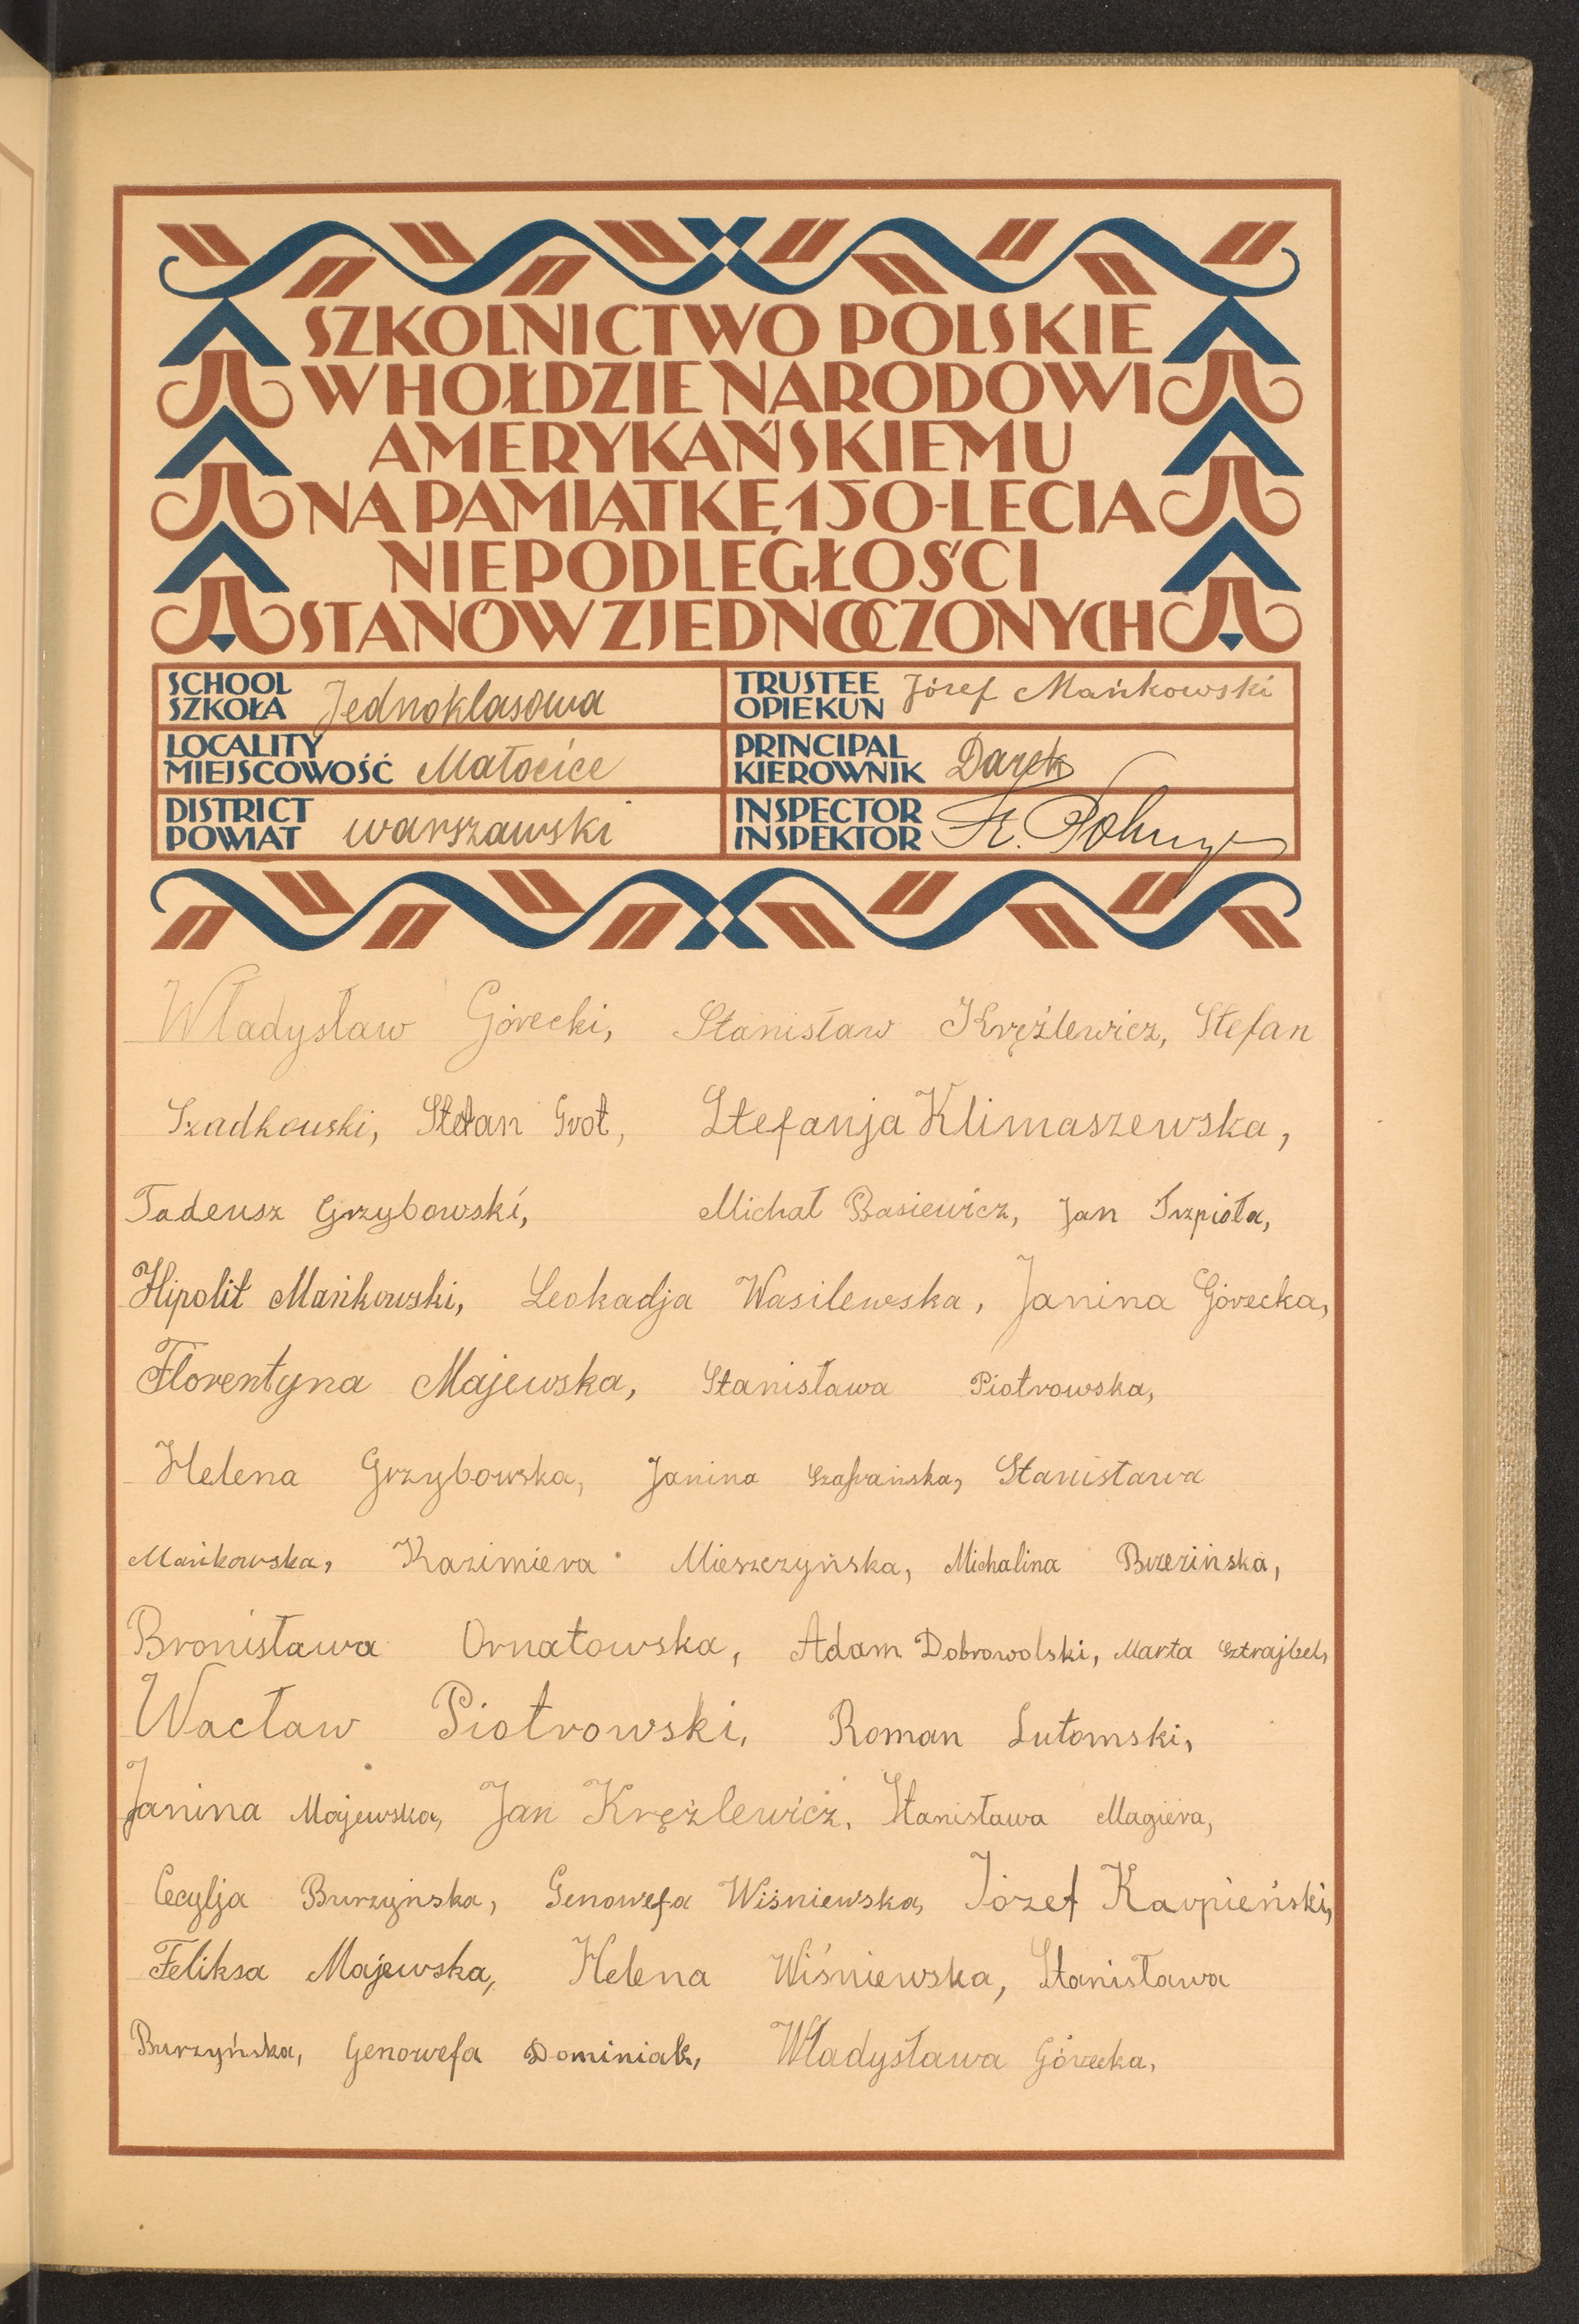 SZKOLNICTWO POLSKIE
W HOŁDZIE NARODOWI
AMERYKAŃSKIEMU
NA PAMIĄTKĘ 150-LECIA
NIEPODLEGŁOŚCI
STANÓW ZJEDNOCZONYCH
SCHOOL
SZKOŁA Jednoklasowa
TRUSTEE
OPIEKUN Józef Mańkowski
LOCALITY
MIEJSCOWOŚĆ Małocice
PRINCIPAL
KIEROWNIK
DISTRICT
POWIAT warszawski
INSPECTOR
INSPEKTOR
Władysław Górecki, Stanisław Krężlewicz, Stefan
Szadkowski, Stefan Grot, Stefanja Klimaszewska,
Tadeusz Grzybowski, Michał Basiewicz, Jan Trzpioła,
Hipolit Mańkowski, Leokadja Wasilewska, Janina Górecka,
Florentyna Majewska, Stanisława Piotrowska,
Helena Grzybowska, Janina Szafrańska, Stanisława
Mańkowska, Kazimiera Mieszczyńska, Michalina Brzezińska,
Bronisława Ornatowska, Adam Dobrowolski, Marta Sztrajbel,
Wacław Piotrowski, Roman Lutomski,
Janina Majewska, Jan Krężlewicz, Stanisława Magiera,
Cecylja Burzyńska, Genowefa Wiśniewska, Józef Karpieński,
Feliksa Majewska, Helena Wiśniewska, Stanisława
Burzyńska, Genowefa Dominiak, Władysława Górecka,